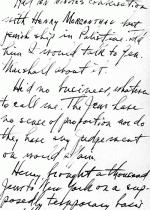 Had ten minutes conversation
with Henry Morgenthau about
Jewish ship in Palistine. Told
him I would talk to Gen.
Marshall about it.
He'd no business, whatever
to call me. The Jews have
no sense of proportion nor do
they have any judgement
on world affairs.
Henry brought a thousand
Jews to New York on a sup-
posedly temporary basis